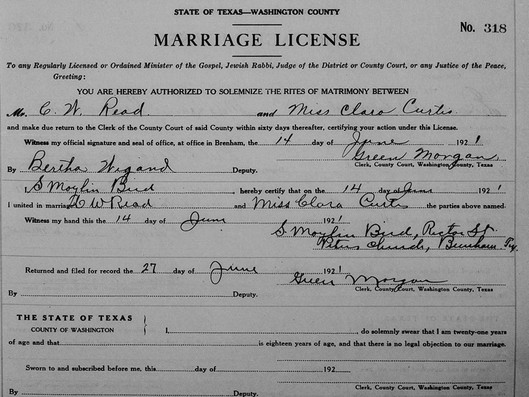 STATE OF TEXAS—WASHINGTON COUNTY
No. 318
MARRIAGE LICENSE
To any Regularly Licensed or Ordained Minister of the Gospel, Jewish Rabbi, Judge of the District or County Court, or any Justice of the Peace,
Greeting:
YOU ARE HEREBY AUTHORIZED TO SOLEMNIZE THE RITES OF MATRIMONY BETWEEN
Mr. C. W. Read and Miss Clara Curtis
and make due return to the Clerk of the County Court of said County within sixty days thereafter, certifying your action under this License.
Witness my official signature and seal of office, at office in Brenham, the 14 day of June 1921
Green Morgan,
Clerk, County Court, Washington County, Texas
By Bertha Wigand Deputy.
I, S Moylin Bird hereby certify that on the 14 day of June 1921
I united in marriage C W Read and Miss Clara Curtis the parties above named.
Witness my hand this the 14 day of June 1921
S Moylin Bird, Rector St
Peters Church, Brenham Tex
Returned and filed for record the 27 day of June 1921
Green Morgan
Clerk, County Court, Washington County, Texas
By Deputy.
THE STATE OF TEXAS
COUNTY OF WASHINGTON I, do solemnly swear that I am twenty-one years
of age and that is eighteen years of age, and that there is no legal objection to our marriage.
Sworn to and subscribed before me, this day of 192
Clerk, County Court, Washington County, Texas
By Deputy.